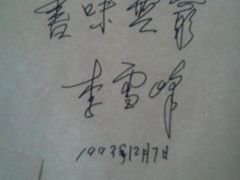 書味無窮
李雪峰
1993年12月7日